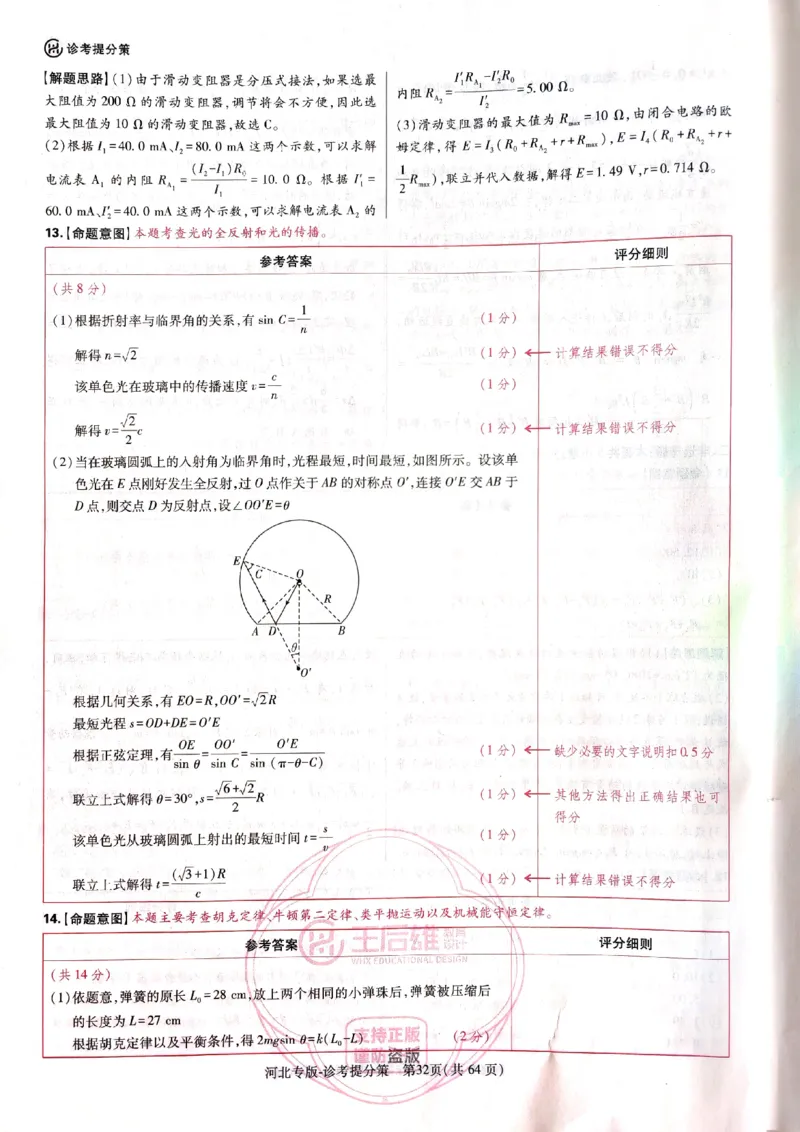 诊考提分策
【解题思路】(1)由于滑动变阻器是分压式接法,如果选最
大阻值为 200 Ω 的滑动变阻器,调节将会不方便,因此选
最大阻值为 10 Ω 的滑动变阻器,故选 C。
(2)根据 I₁=40.0 mA、I₂=80.0 mA 这两个示数,可以求解
电流表 A₁ 的内阻 R_A₁=(I₂-I₁)R₀/I₁=10.0 Ω。根据 I′₁=
60.0 mA、I′₂=40.0 mA 这两个示数,可以求解电流表 A₂ 的
内阻 R_A₂=(I′₁R_A₁-I′₂R₀)/I′₂=5.00 Ω。
(3)滑动变阻器的最大值为 R_max=10 Ω,由闭合电路的欧
姆定律,得 E=I₃(R₀+R_A₂+r+R_max),E=I₄(R₀+R_A₂+r+
1/2 R_max),联立并代入数据,解得 E=1.49 V,r=0.714 Ω。
13.【命题意图】本题考查光的全反射和光的传播。
参考答案 评分细则
(共 8 分)
(1)根据折射率与临界角的关系,有 sin C=1/n (1 分)
解得 n=√2 (1 分) ← 计算结果错误不得分
该单色光在玻璃中的传播速度 v=c/n (1 分)
解得 v=√2/2 c (1 分) ← 计算结果错误不得分
(2)当在玻璃圆弧上的入射角为临界角时,光程最短,时间最短,如图所示。设该单
色光在 E 点刚好发生全反射,过 O 点作关于 AB 的对称点 O′,连接 O′E 交 AB 于
D 点,则交点 D 为反射点,设∠OO′E=θ
E
C
O
R
A D B
θ
O′
根据几何关系,有 EO=R,OO′=√2R
最短光程 s=OD+DE=O′E
根据正弦定理,有 OE/sin θ=OO′/sin C=O′E/sin (π-θ-C) (1 分) ← 缺少必要的文字说明扣 0.5 分
联立上式解得 θ=30°,s=(√6+√2)/2 R (1 分) ← 其他方法得出正确结果也可
得分
该单色光从玻璃圆弧上射出的最短时间 t=s/v (1 分)
联立上式解得 t=(√3+1)R/c (1 分) ← 计算结果错误不得分
14.【命题意图】本题主要考查胡克定律、牛顿第二定律、类平抛运动以及机械能守恒定律。
参考答案 评分细则
王后雄 教育设计
WHX EDUCATIONAL DESIGN
(共 14 分)
(1)依题意,弹簧的原长 L₀=28 cm,放上两个相同的小弹珠后,弹簧被压缩后
的长度为 L=27 cm
根据胡克定律以及平衡条件,得 2mgsin θ=k(L₀-L) (2 分)
支持正版
谨防盗版
河北专版-诊考提分策 第32页(共 64 页)